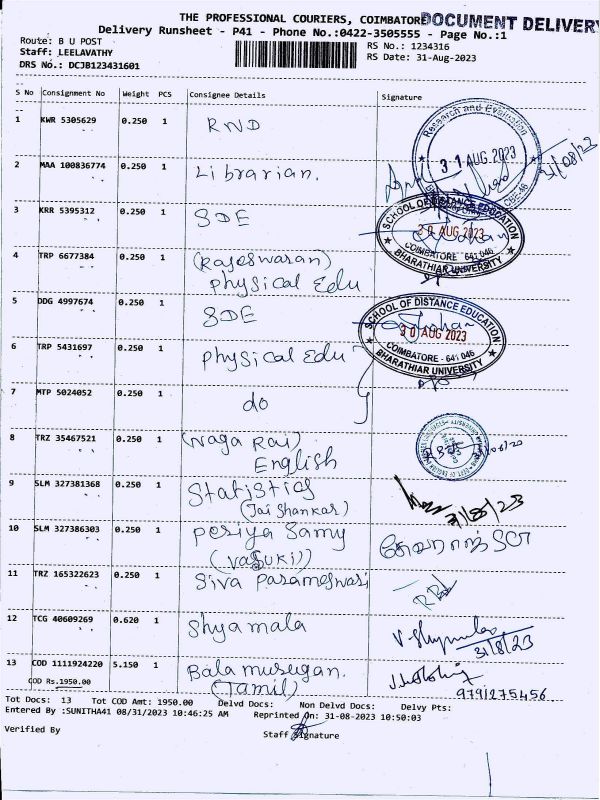 THE PROFESSIONAL COURIERS, COIMBATORE
DOCUMENT DELIVERY
Delivery Runsheet - P41 - Phone No.:0422-3505555 - Page No.:1
Route: B U POST
RS No.: 1234316
Staff: LEELAVATHY
RS Date: 31-Aug-2023
DRS No.: DCJB123431601
S No Consignment No Weight PCS Consignee Details Signature
1 KWR 5305629 0.250 1 RND
Research and Evaluation
31 AUG 2023
CBE-46
31/08/23
2 MAA 100836774 0.250 1 Librarian.
3 KRR 5395312 0.250 1 SDE
SCHOOL OF DISTANCE EDUCATION
30 AUG 2023
COIMBATORE - 641 046
BHARATHIAR UNIVERSITY
4 TRP 6677384 0.250 1 (Rajeswaran)
physical Edu
5 DDG 4997674 0.250 1 SDE
SCHOOL OF DISTANCE EDUCATION
30 AUG 2023
COIMBATORE - 641 046
BHARATHIAR UNIVERSITY
6 TRP 5431697 0.250 1 physical Edu
7 MTP 5024052 0.250 1 do
8 TRZ 35467521 0.250 1 (Naga Raj)
English
9 SLM 327381368 0.250 1 Statistics
(Jai Shankar)
31/8/23
10 SLM 327386303 0.250 1 Periya Samy
(Vasuki)
11 TRZ 165322623 0.250 1 Siva Parameswari
12 TCG 40609269 0.620 1 Shyamala
31/8/23
13 COD 1111924220 5.150 1 Bala murugan.
COD Rs.1950.00 (Tamil)
9791275456
Tot Docs: 13 Tot COD Amt: 1950.00 Delvd Docs: Non Delvd Docs: Delvy Pts:
Entered By :SUNITHA41 08/31/2023 10:46:25 AM Reprinted On: 31-08-2023 10:50:03
Verified By Staff Signature